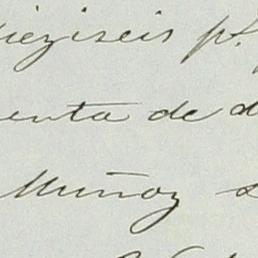 dieziseis p.
enta de d
Muñoz s